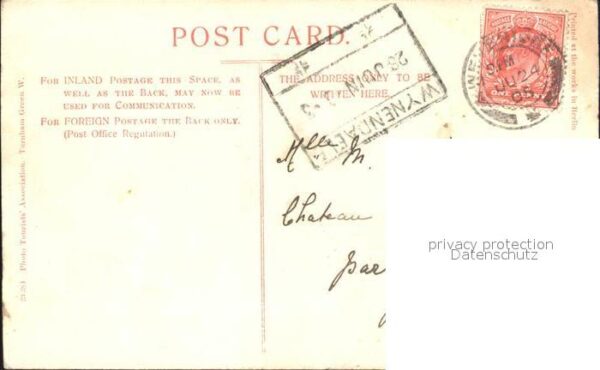 POST CARD.
FOR INLAND POSTAGE THIS SPACE, AS
WELL AS THE BACK, MAY NOW BE
USED FOR COMMUNICATION.
FOR FOREIGN POSTAGE THE BACK ONLY.
(Post Office Regulation.)
THE ADDRESS ONLY TO BE
WRITTEN HERE.
WYNENDAELE
JUIN
JU 24
05
Mlle M.
Chateau
par
privacy protection
Datenschutz
Photo Tourists' Association, Turnham Green W.
Printed at the works in Berlin